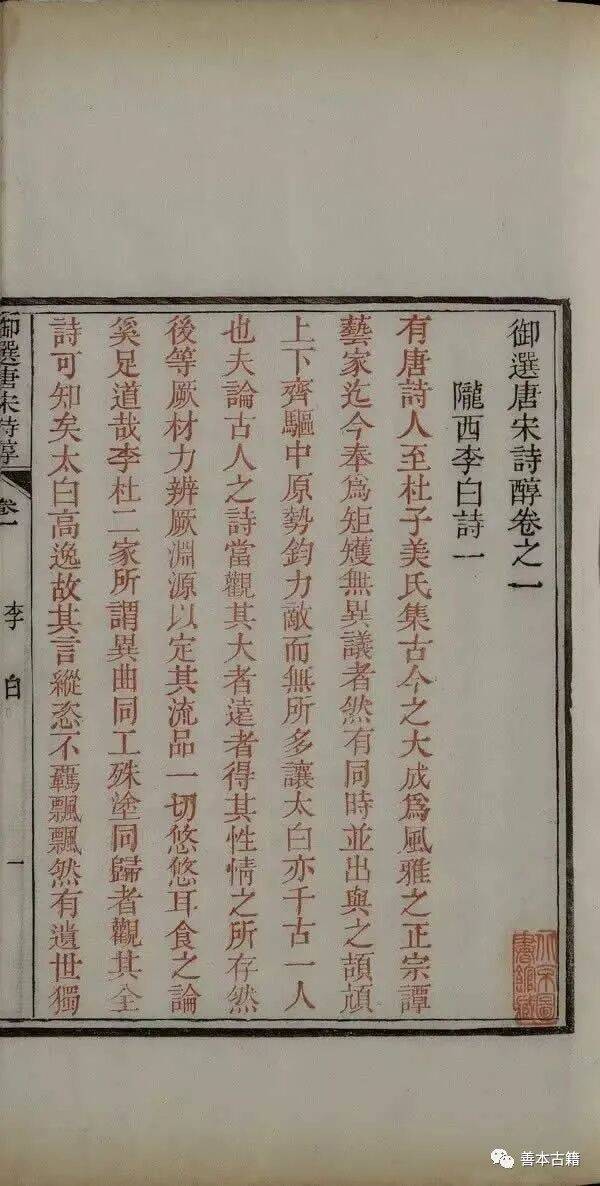 御選唐宋詩醇卷之一
隴西李白詩一
有唐詩人至杜子美氏集古今之大成爲風雅之正宗譚
藝家迄今奉爲矩矱無異議者然有同時並出與之頡頏
上下齊驅中原勢鈞力敵而無所多讓太白亦千古一人
也夫論古人之詩當觀其大者遠者得其性情之所存然
後等厥材力辨厥淵源以定其流品一切悠悠耳食之論
奚足道哉李杜二家所謂異曲同工殊塗同歸者觀其全
詩可知矣太白高逸故其言縱恣不羈飄飄然有遺世獨
御選唐宋詩醇 卷一 李白 一
善本古籍